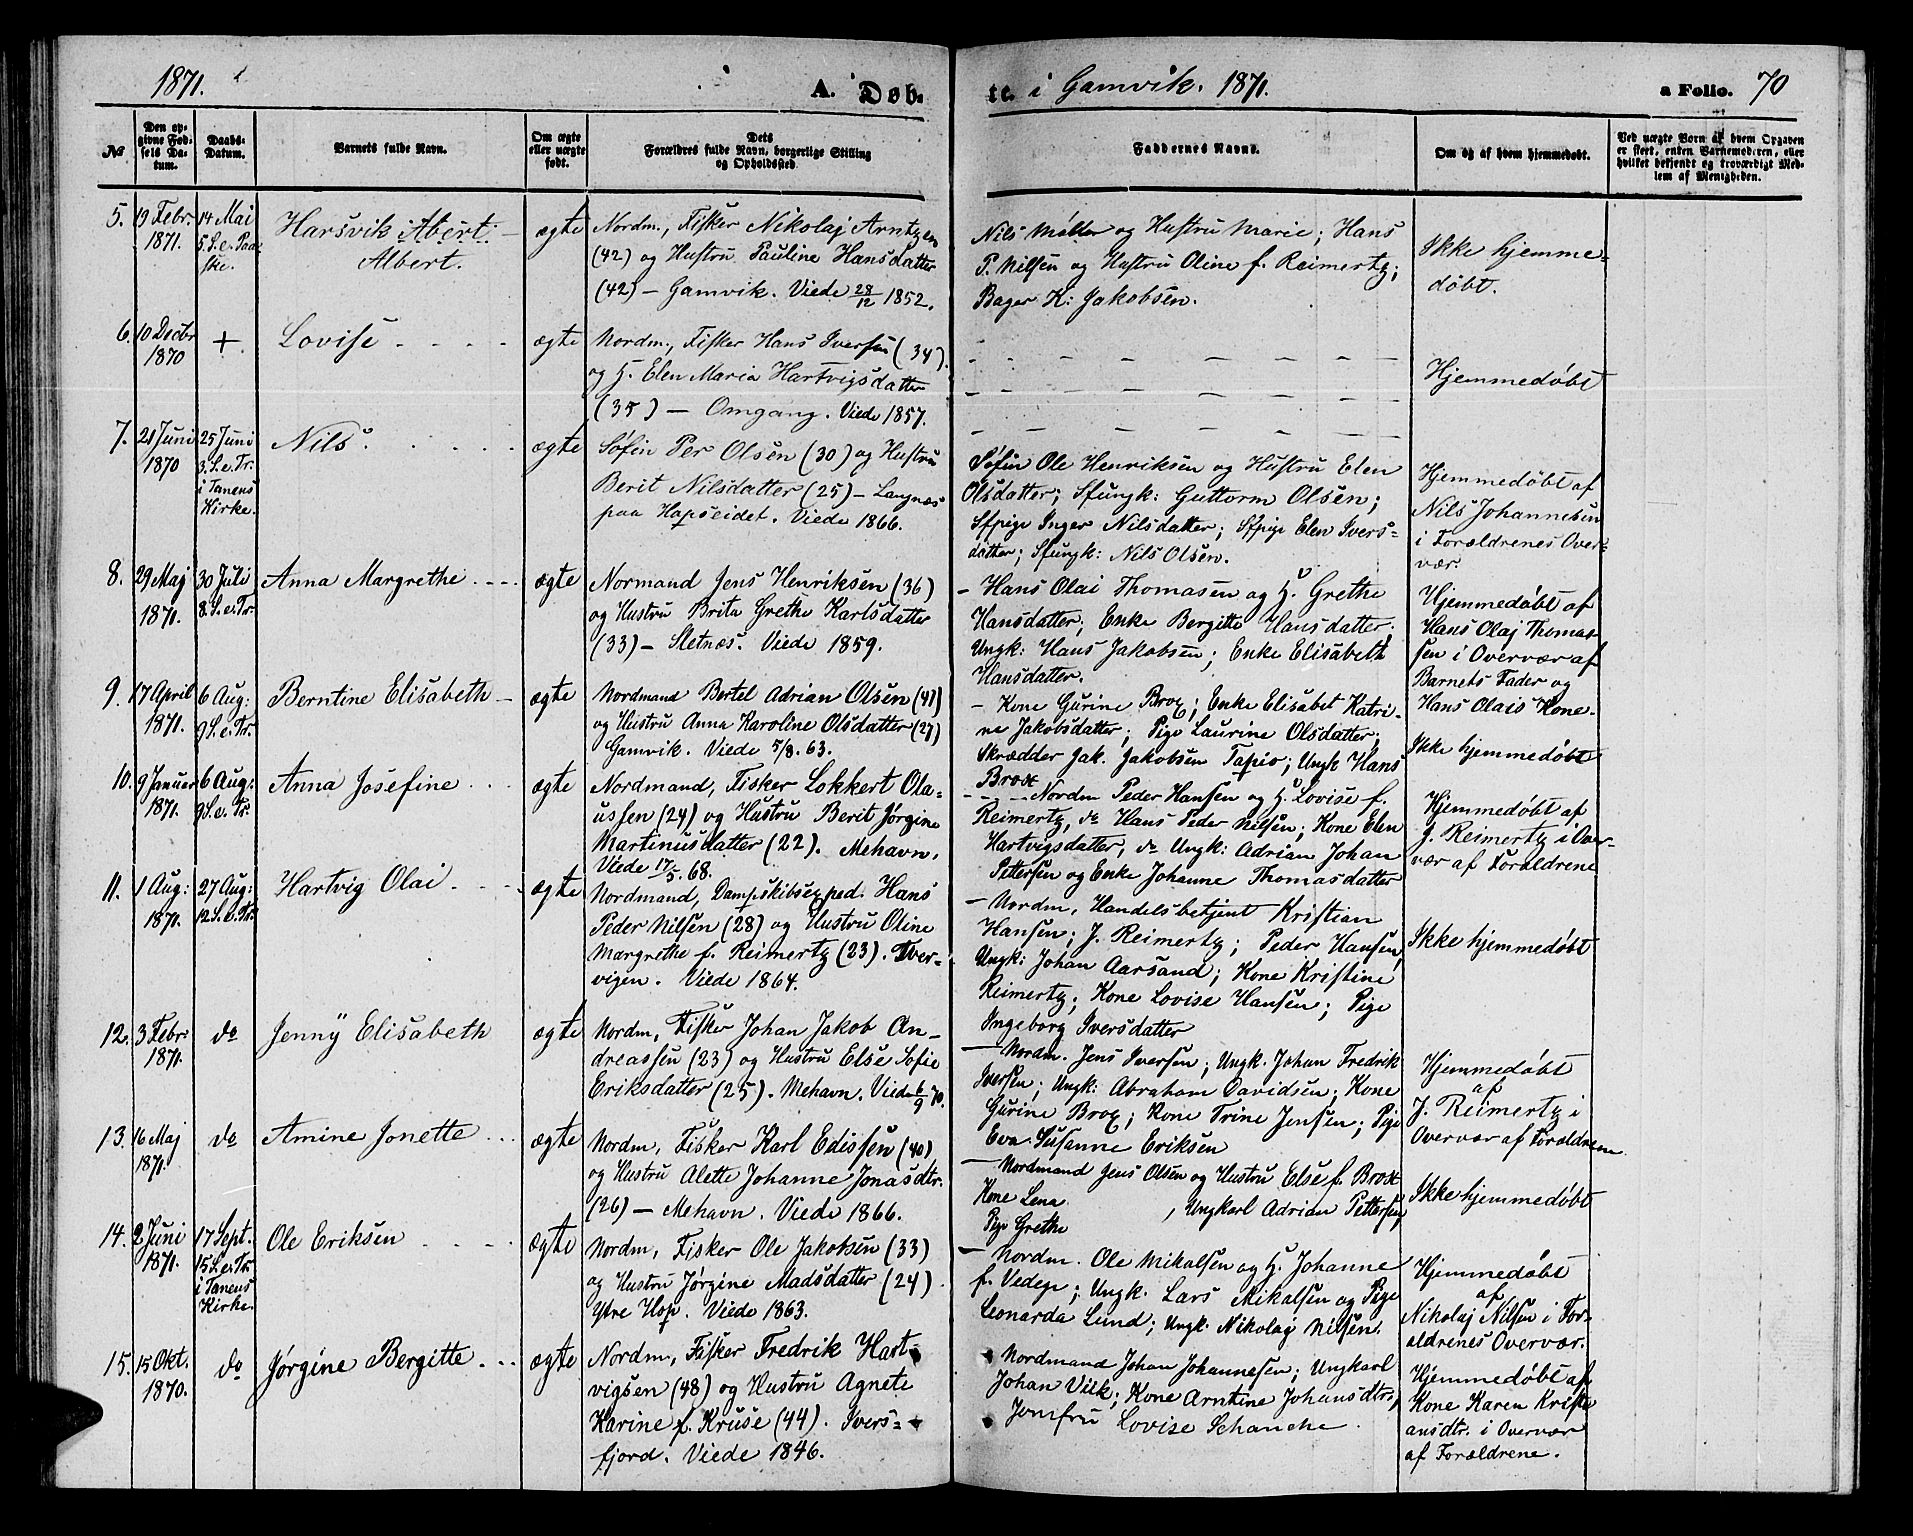 1871.
A. Døb-
te. i Gamvik. 1871.
a Folio. 70
No
Den op-
givne Fød-
sels Da-
tum.
Daabs-
Datum.
Barnets fulde Navn.
Om ægte
eller uægte
født.
Dets
Forældres fulde Navn, borgerlige Stilling
og Opholdssted.
Faddernes Navne.
Om og af hvem hjemmedøbt.
Ved uægte Børn af hvem Opgaven
er skeet, enten Barnemoderen, eller
hvilket bekjendt og troværdigt Med-
lem af Menigheden.
5.
19 Febr.
1871.
14 Mai
5. S. e. Paa-
ske.
Harsvik Abert
Albert.
ægte
Nordm., Fisker Nikolaj Arntzen
(42) og Hustru Pauline Hansdatter
(42) – Gamvik. Viede 28/12 1852.
Nils Møller og Hustru Marie; Hans
P. Nilsen og Hustru Oline f. Reimertz;
Bager K: Jakobsen.
Ikke hjemme-
døbt.
6.
10 Decbr
1870
+
Lovise
ægte
Nordm., Fisker Hans Iversen (34).
og H. Elen Maria Hartvigsdatter
(35) – Omgang. Viede 1857.
Hjemmedøbt
7.
21 Juni
1870
25 Juni
3. S. e. Tr.
i Tanens
Kirke.
Nils.
ægte
Søfin Per Olsen (30) og Hustru
Berit Nilsdatter (25) – Langnæs
paa Hopseidet. Viede 1866.
Søfin Ole Henriksen og Hustru Elen
Olsdatter; Sfungk: Guttorm Olsen;
Sfpige Inger Nilsdatter; Sfpige Elen Ivers-
datter; Sfungk: Nils Olsen.
Hjemmedøbt af
Nils Johannesen
i Forældrenes Over-
vær.
8.
29 Maj
1871.
30 Juli
8. S. e. Tr.
Anna Margrethe
ægte
Normand Jens Henriksen (36)
og Hustru Brita Grethe Karlsdatter
(33) – Sletnæs. Viede 1859.
– Hans Olai Thomasen og H. Grethe
Hansdatter; Enke Bergitte Hansdatter;
Ungk: Hans Jakobsen; Enke Elisabeth
Hansdatter.
Hjemmedøbt af
Hans Olaj Thomas-
sen i Overvær af
Barnets Fader og
Hans Olais Kone.
9.
17 April
1871.
6 Aug:
9 S. e. Tr.
Berntine Elisabeth –
ægte
Nordmand Bertel Adrian Olsen (47)
og Hustru Anna Karoline Olsdatter (27)
Gamvik. Viede 5/8. 63.
– Kone Gurine Brox; Enke Elisabet Katri-
ne Jakobsdatter; Pige Laurine Olsdatter;
Skrædder Jak. Jakobsen Tapio; Ungk Hans
Brox
Ikke hjemmedøbt
10.
9 Januar
1871.
6 Aug:
9 S. e. Tr.
Anna Josefine
ægte
Nordmand, Fisker Lokkert Ola-
ussen (24) og Hustru Berit Jørgine
Martinusdatter (22). Mehavn.
Viede 17/5. 68.
– Nordm Peder Hansen og H. Lovise f.
Reimertz, do Hans Peder Nilsen; Kone Elen
Hartvigsdatter, do Ungk: Adrian Johan
Pettersen og Enke Johanne Thomasdatter
Hjemmedøbt af
J. Reimertz i Over-
vær af Forældrene
11.
1 Aug:
1871.
27 Aug:
12 S. e. Tr.
Hartvig Olai
ægte
Nordmand, Dampskibsexped. Hans
Peder Nilsen (28) og Hustru Oline
Margrethe f. Reimertz (23). Tver-
vigen. Viede 1864.
– Nordm, Handelsbetjent Kristian
Hansen; J. Reimertz; Peder Hansen,
Ungk: Johan Aarsand; Kone Kristine
Reimertz; Kone Lovise Hansen; Pige
Ingeborg Iversdatter
Ikke hjemmedøbt
12.
3 Febr.
1871.
do
Jenny Elisabeth
ægte
Nordm, Fisker Johan Jakob An-
dreassen (23) og Hustru Else Sofie
Eriksdatter (25). Mehavn. Viede 6/9 70.
– Nordm. Jens Iversen; Ungk. Johan Fredrik
Iversen; Ungk: Abraham Davidsen; Kone
Gurine Brox; Kone Trine Jensen; Pige
Eva Susanne Eriksen
Hjemmedøbt
af
J. Reimertz i
Overvær af Forældrene
13.
16 Maj
1871.
do
Amine Jonette
ægte
Nordm, Fisker Karl Edissen (40)
og Hustru Alette Johanne Jonasdtr.
(26) – Mehavn. Viede 1866.
– Nordmand Jens Olsen og Hustru Else f. Brox
Kone Lena
, Ungkarl Adrian Pettersen,
Pige Grethe
Ikke hjemmedøbt
14.
2 Juni
1871.
17 Sept.
15 S. e. Tr.
i Tanens
Kirke.
Ole Eriksen
ægte
Nordm, Fisker Ole Jakobsen (33)
og Hustru Jørgine Madsdatter (24).
Ytre Hop. Viede 1863.
– Nordm. Ole Mikalsen og H. Johanne
f. Vedege; Ungk. Lars Mikalsen og Pige
Leonarda Lund; Ungk. Nikolaj Nilsen.
Hjemmedøbt
af
Nikolaj Nilsen i For-
ældrenes Overvær.
15.
15 Okt.
1870.
do
Jørgine Bergitte
ægte
Nordm, Fisker Fredrik Hart-
vigsen (48) og Hustru Agnete
Karine f. Kruse (44). Ivers-
fjord. Viede 1846.
Nordmand Johan Johannesen; Ungkarl
Johan Viik; Kone Arntine Johansdtr,
Jomfru Lovise Schanche
Hjemmedøbt af
Kone Karen Kristi-
ansdtr. i Overvær
af Forældrene.